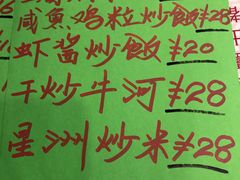 咸鱼鸡粒炒飯¥28
虾酱炒飯¥20
干炒牛河¥28
星洲炒米¥28